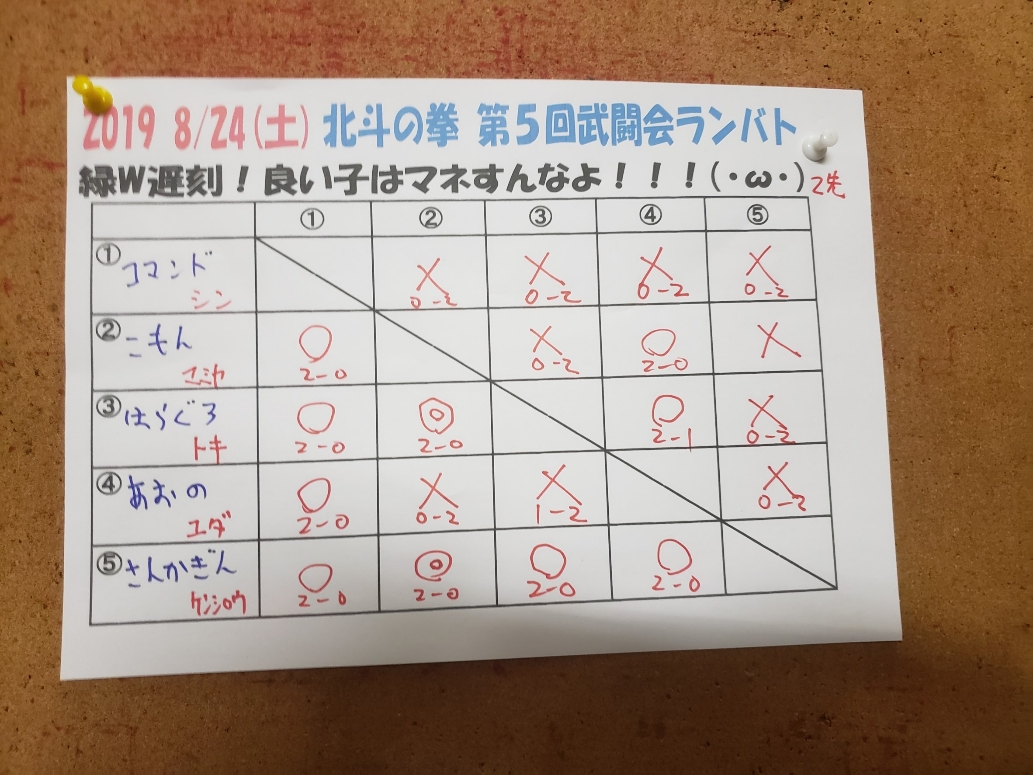 2019 8/24(土) 北斗の拳 第5回武闘会ランバト
緑W遅刻！良い子はマネすんなよ！！！(・ω・) 2先
① ② ③ ④ ⑤
① コマンド × × × ×
シン 0-2 0-2 0-2 0-2
② こもん ○ × ○ ×
マミヤ 2-0 0-2 2-0
③ はらぐろ ○ ◎ ○ ×
トキ 2-0 2-0 2-1 0-2
④ あおの ○ × × ×
ユダ 2-0 0-2 1-2 0-2
⑤ さんかぎん ○ ◎ ○ ○
ケンシロウ 2-0 2-0 2-0 2-0